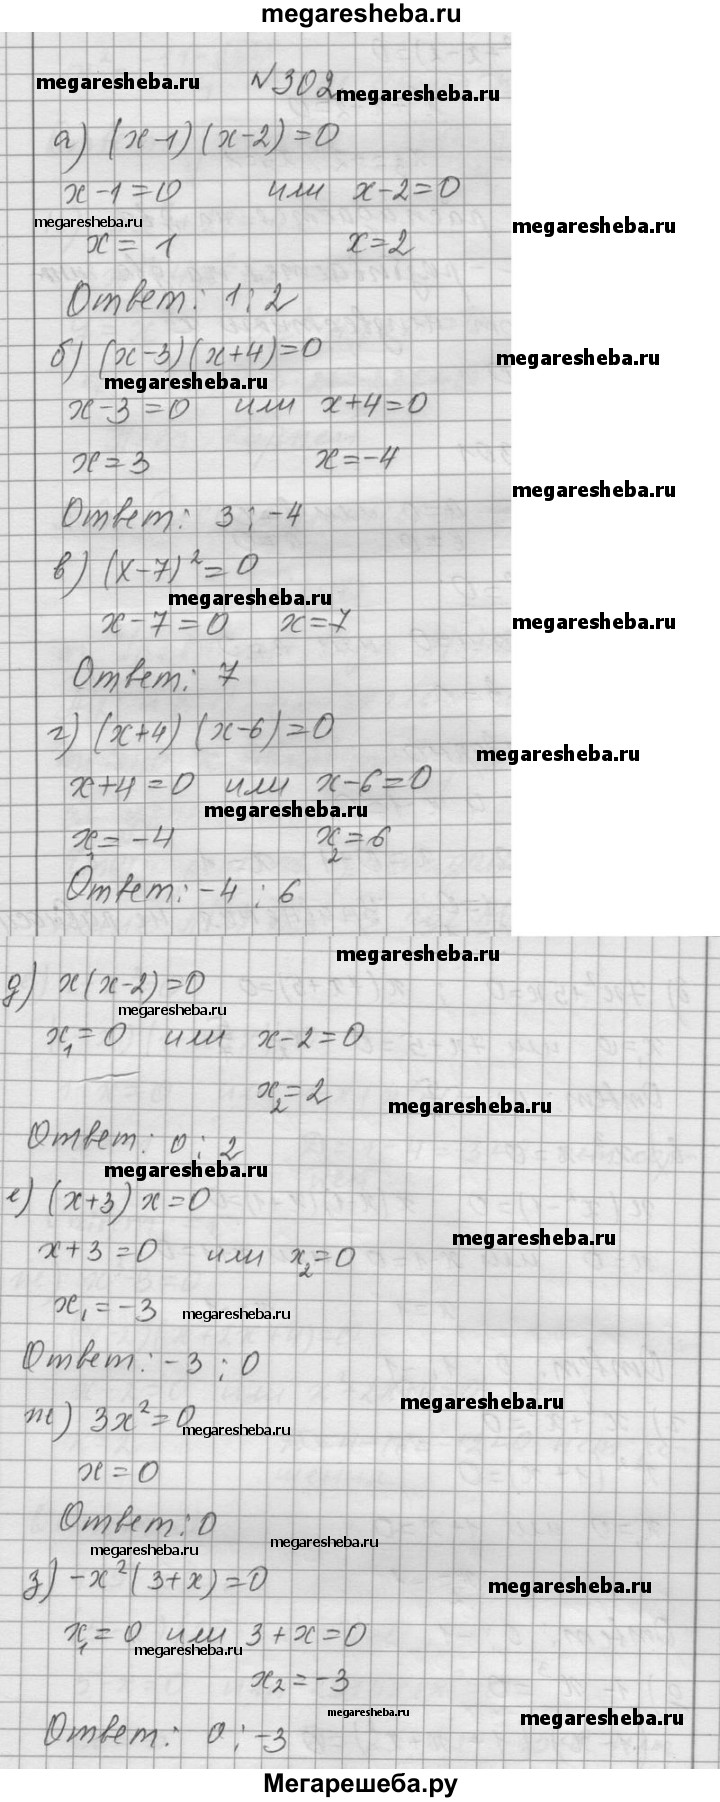 megaresheba.ru
megaresheba.ru №302 megaresheba.ru
а) (x-1)(x-2)=0
x-1=0 или x-2=0
megaresheba.ru megaresheba.ru
x= 1 x=2
Ответ: 1; 2
б) (x-3)(x+4)=0 megaresheba.ru
megaresheba.ru
x-3=0 или x+4=0
x=3 x=-4
megaresheba.ru
Ответ: 3; -4
в) (x-7)²=0
megaresheba.ru
x-7=0 x=7 megaresheba.ru
Ответ: 7
г) (x+4) (x-6)=0
megaresheba.ru
x+4=0 или x-6=0
megaresheba.ru
x₁=-4 x₂=6
Ответ: -4; 6
megaresheba.ru
д) x(x-2)=0
megaresheba.ru
x₁=0 или x-2=0
x₂=2
megaresheba.ru
Ответ: 0; 2
megaresheba.ru
е) (x+3) x=0
megaresheba.ru
x+3=0 или x₂=0
x₁=-3 megaresheba.ru
Ответ: -3; 0
megaresheba.ru
ж) 3x²=0
megaresheba.ru
x=0
Ответ: 0
megaresheba.ru megaresheba.ru
з) -x²(3+x)=0
megaresheba.ru
x₁=0 или 3+x=0
megaresheba.ru
x₂=-3
megaresheba.ru megaresheba.ru
Ответ: 0; -3
Мегарешеба.ру